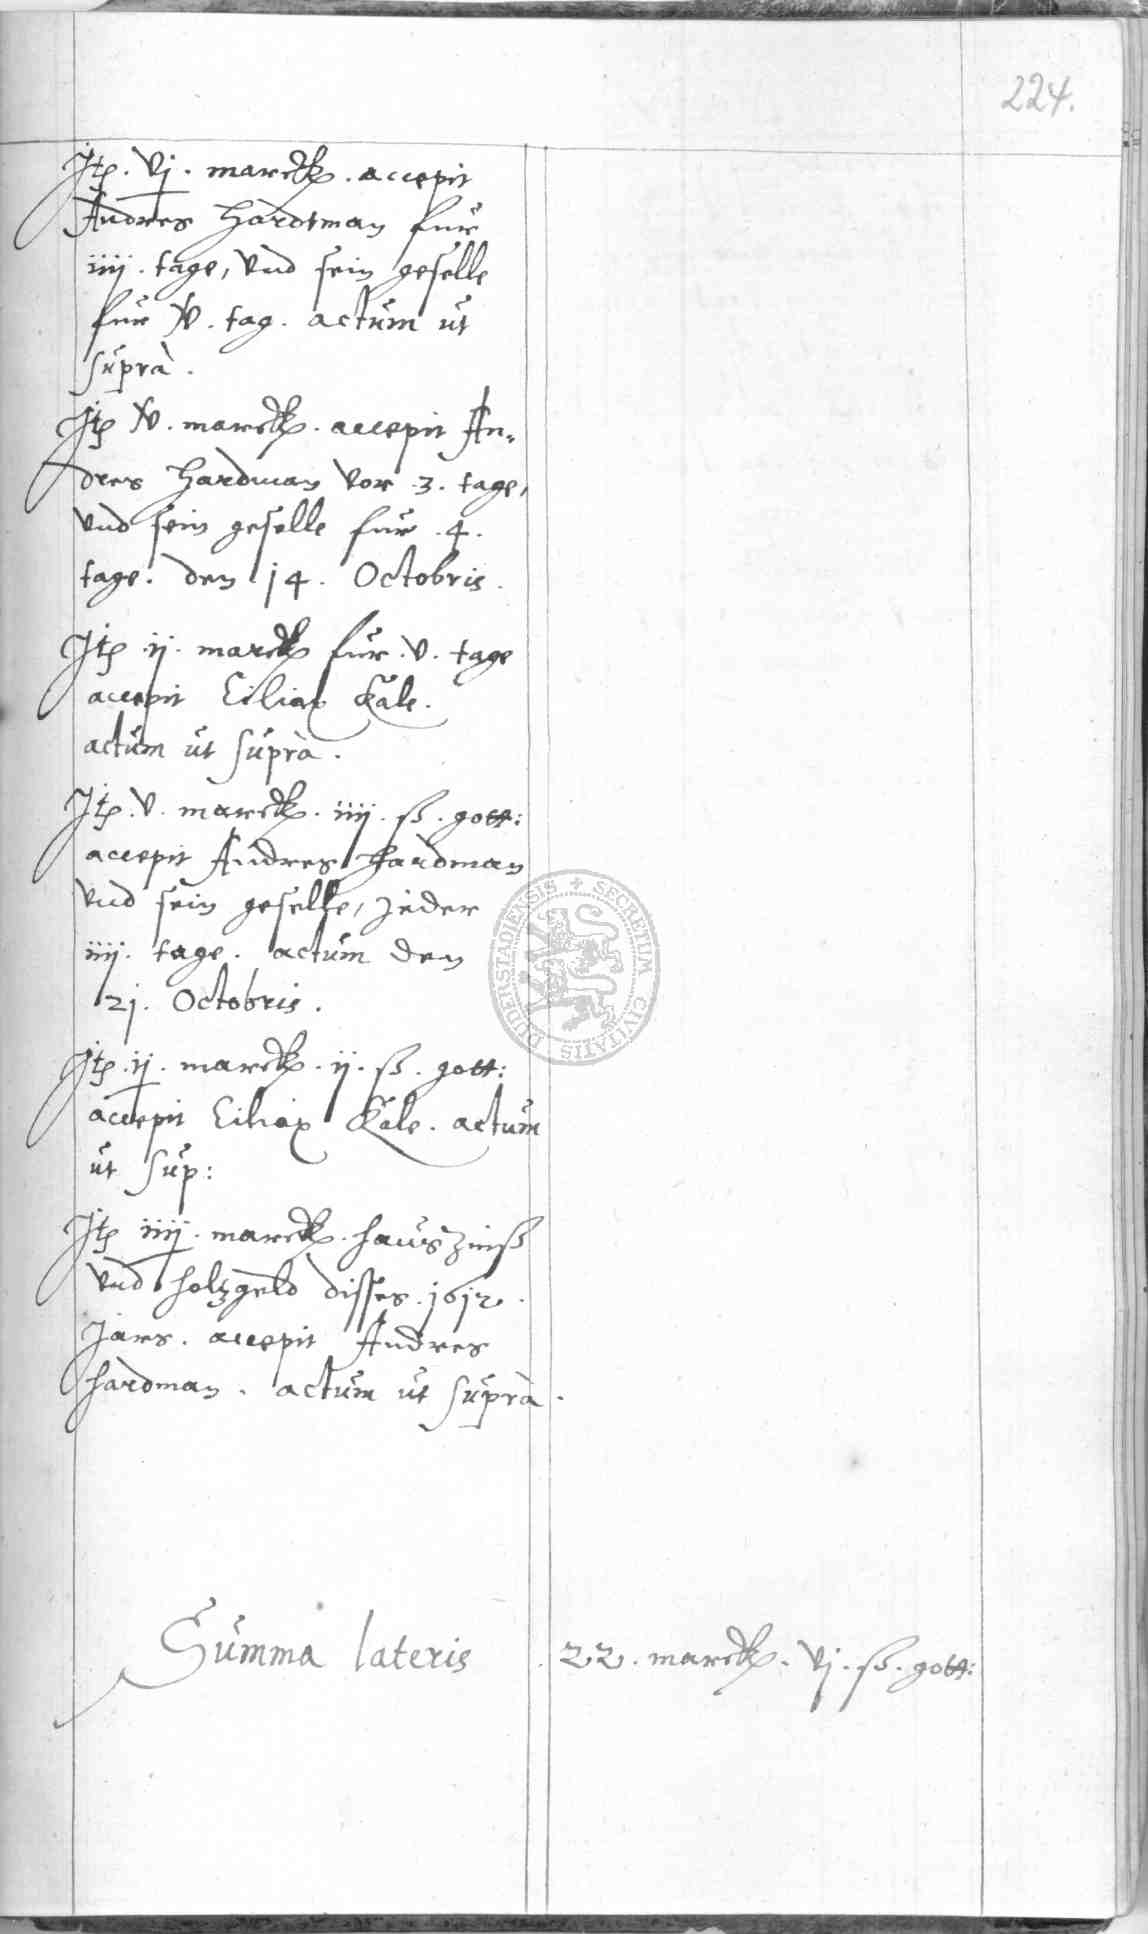 224.
Jtem. vj. marck. accepit
Andres Hardtman fur
iiij. tage, vnd sein geselle
fur v. tag. actum ut
suprà.
Jtem v. marck. accepit An-
dres Hardman vor .3. tage,
vnd sein geselle fur .4.
tage. den 14. Octobris.
Jtem .ij. marck fur .v. tage
accepit Ciliax Kale.
actum ut suprà.
Jtem .v. marck. iiij. ß. gott:
accepit Andres Hardman
vnd sein geselle, jeder
iiij. tage. actum den
21. Octobris.
Jtem .ij. marck. ij. ß. gott:
accepit Ciliax Kale. actum
ut sup:
Jtem iiij. marck. hauszinß
vnd holtzgeld disses .1612.
Jars. accepit Andres
Hardman. actum ut suprà.
Summa lateris 22. marck. vj. ß. gott:
DUDERSTADIENSIS + SECRETUM CIVITATIS